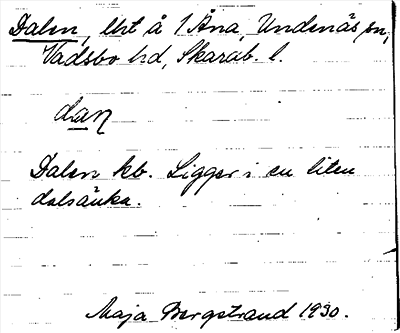 Dalen, lht å 1 Åna, Undenäs sn,
Vadsbo hd, Skarab. l.
dan
Dalen kb. Ligger i en liten
dalsänka.
Maja Bergstrand 1930.